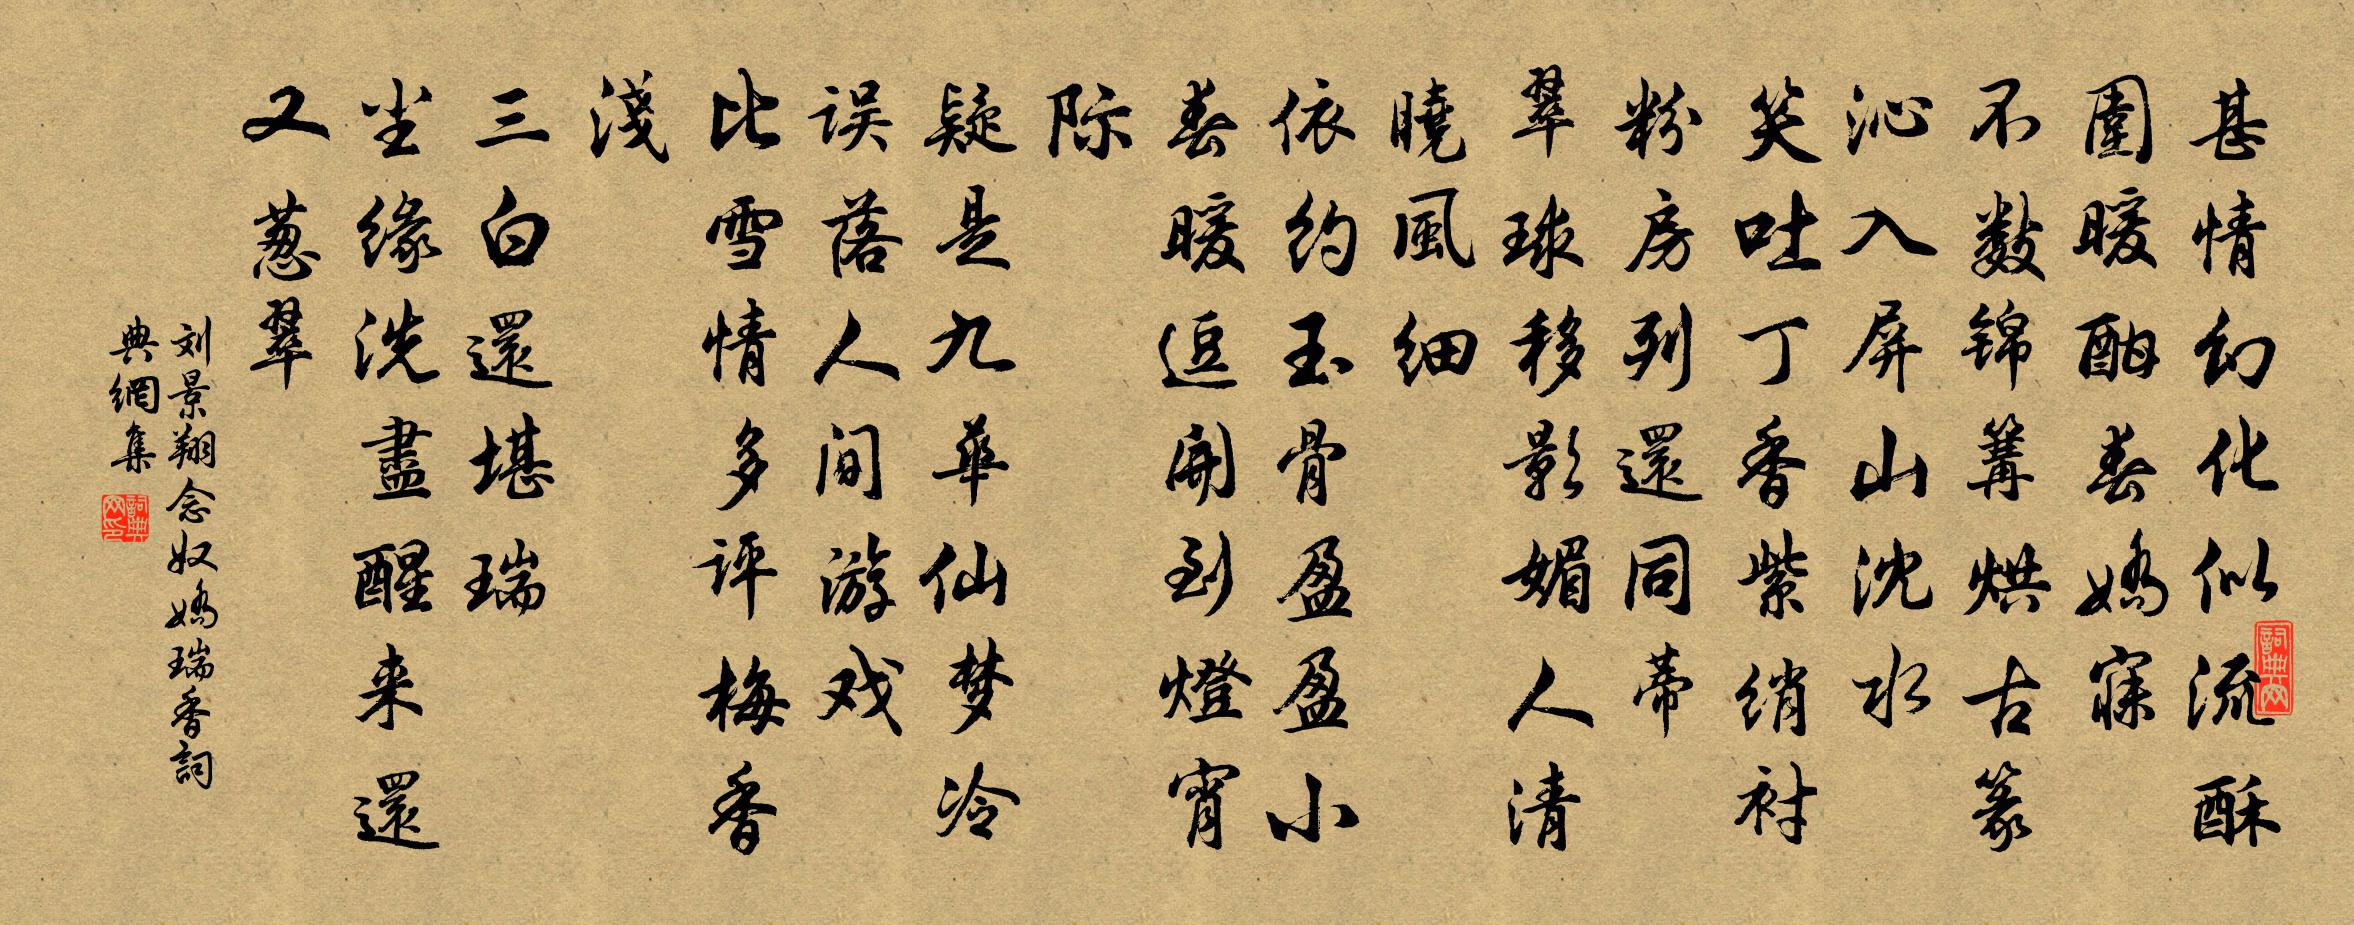 甚情幻化似流酥
圍暖酣春嬌寐
不数锦篝烘古篆
沁入屏山沈水
笑吐丁香紫绡衬
粉房列還同蒂
翠球移影媚人清
曉風细
依约玉骨盈盈小
春暖逗開到燈宵
际
疑是九華仙梦冷
误落人间游戏
比雪情多评梅香
淺
三白還堪瑞
尘缘洗盡醒来還
又葱翠
刘景翔念奴嬌瑞香詞
典網集
詞典网
詞典网印